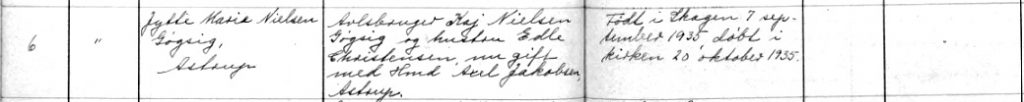 6 " Jytte Maria Nielsen
Gøgsig,
Astrup
Avlsbruger Kaj Nielsen
Gøgsig og hustru Edle
Christensen, nu gift
med Hmd Axel Jakobsen,
Astrup.
Født i Skagen 7 sep-
tember 1935 døbt i
kirken 20 oktober 1935.
"